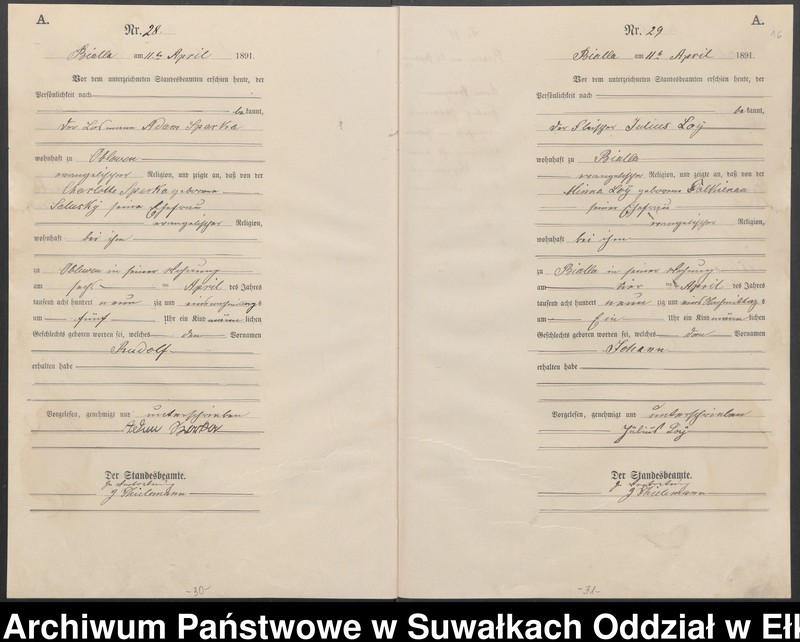 A.
Nr. 28
Bialla am 11ten April 1891.
Vor dem unterzeichneten Standesbeamten erschien heute, der
Persönlichkeit nach
bekannt,
der Losmann Adam
wohnhaft zu
evangelischer Religion, und zeigte an, daß von der
Charlotte geborene
seine Ehefrau
evangelischer Religion,
wohnhaft bei ihm
zu in seiner Wohnung
am April des Jahres
tausend acht hundert neunzig und eins
um fünf Uhr ein Kind männlichen
Geschlechts geboren worden sei, welches den Vornamen
Rudolf
erhalten habe
Vorgelesen, genehmigt und unterschrieben
Der Standesbeamte.
In Vertretung
Thielemann
-30-
A.
Nr. 29
Bialla am 11ten April 1891.
Vor dem unterzeichneten Standesbeamten erschien heute, der
Persönlichkeit nach
bekannt,
der Fleischer Julius Loÿ
wohnhaft zu Bialla
evangelischer Religion, und zeigte an, daß von der
Minna Loÿ geborene
seiner Ehefrau
evangelischer Religion,
wohnhaft bei ihm
zu Bialla in seiner Wohnung
am vier April des Jahres
tausend acht hundert neunzig und eins Nachmittags
um Ein Uhr ein Kind männlichen
Geschlechts geboren worden sei, welches den Vornamen
Johann
erhalten habe
Vorgelesen, genehmigt und unterschrieben
Julius Loÿ
Der Standesbeamte.
In Vertretung
Thielemann
-31-
Archiwum Państwowe w Suwałkach Oddział w Eł